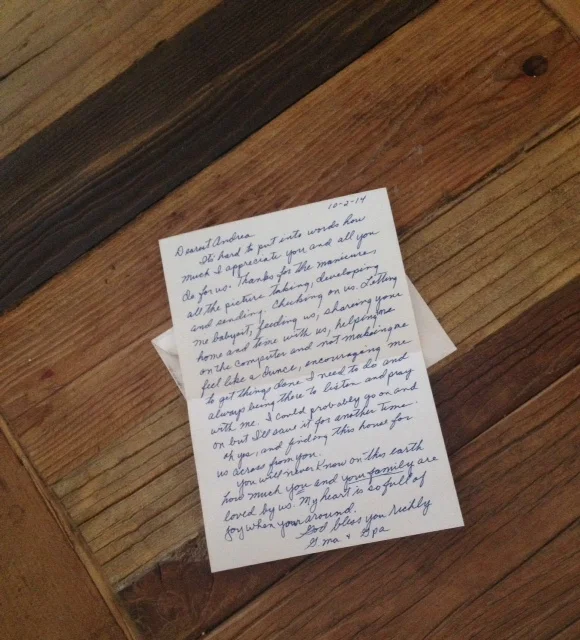 10-2-14
Dearest Andrea
Its hard to put into words how
much I appreciate you and all you
do for us. Thanks for the manicures
all the picture taking, developing
and sending. Checking on us. Letting
me babysit, feeding us, sharing your
home and time with us, helping me
on the computer and not making me
feel like a dunce, encouraging me
to get things done I need to do and
always being there to listen and pray
with me. I could probably go on and
on but I'll save it for another time.
oh yes, and finding this house for
us across from you.
You will never know on this earth
how much you and your family are
loved by us. My heart is so full of
joy when your around.
God bless you richly
Gma + Gpa